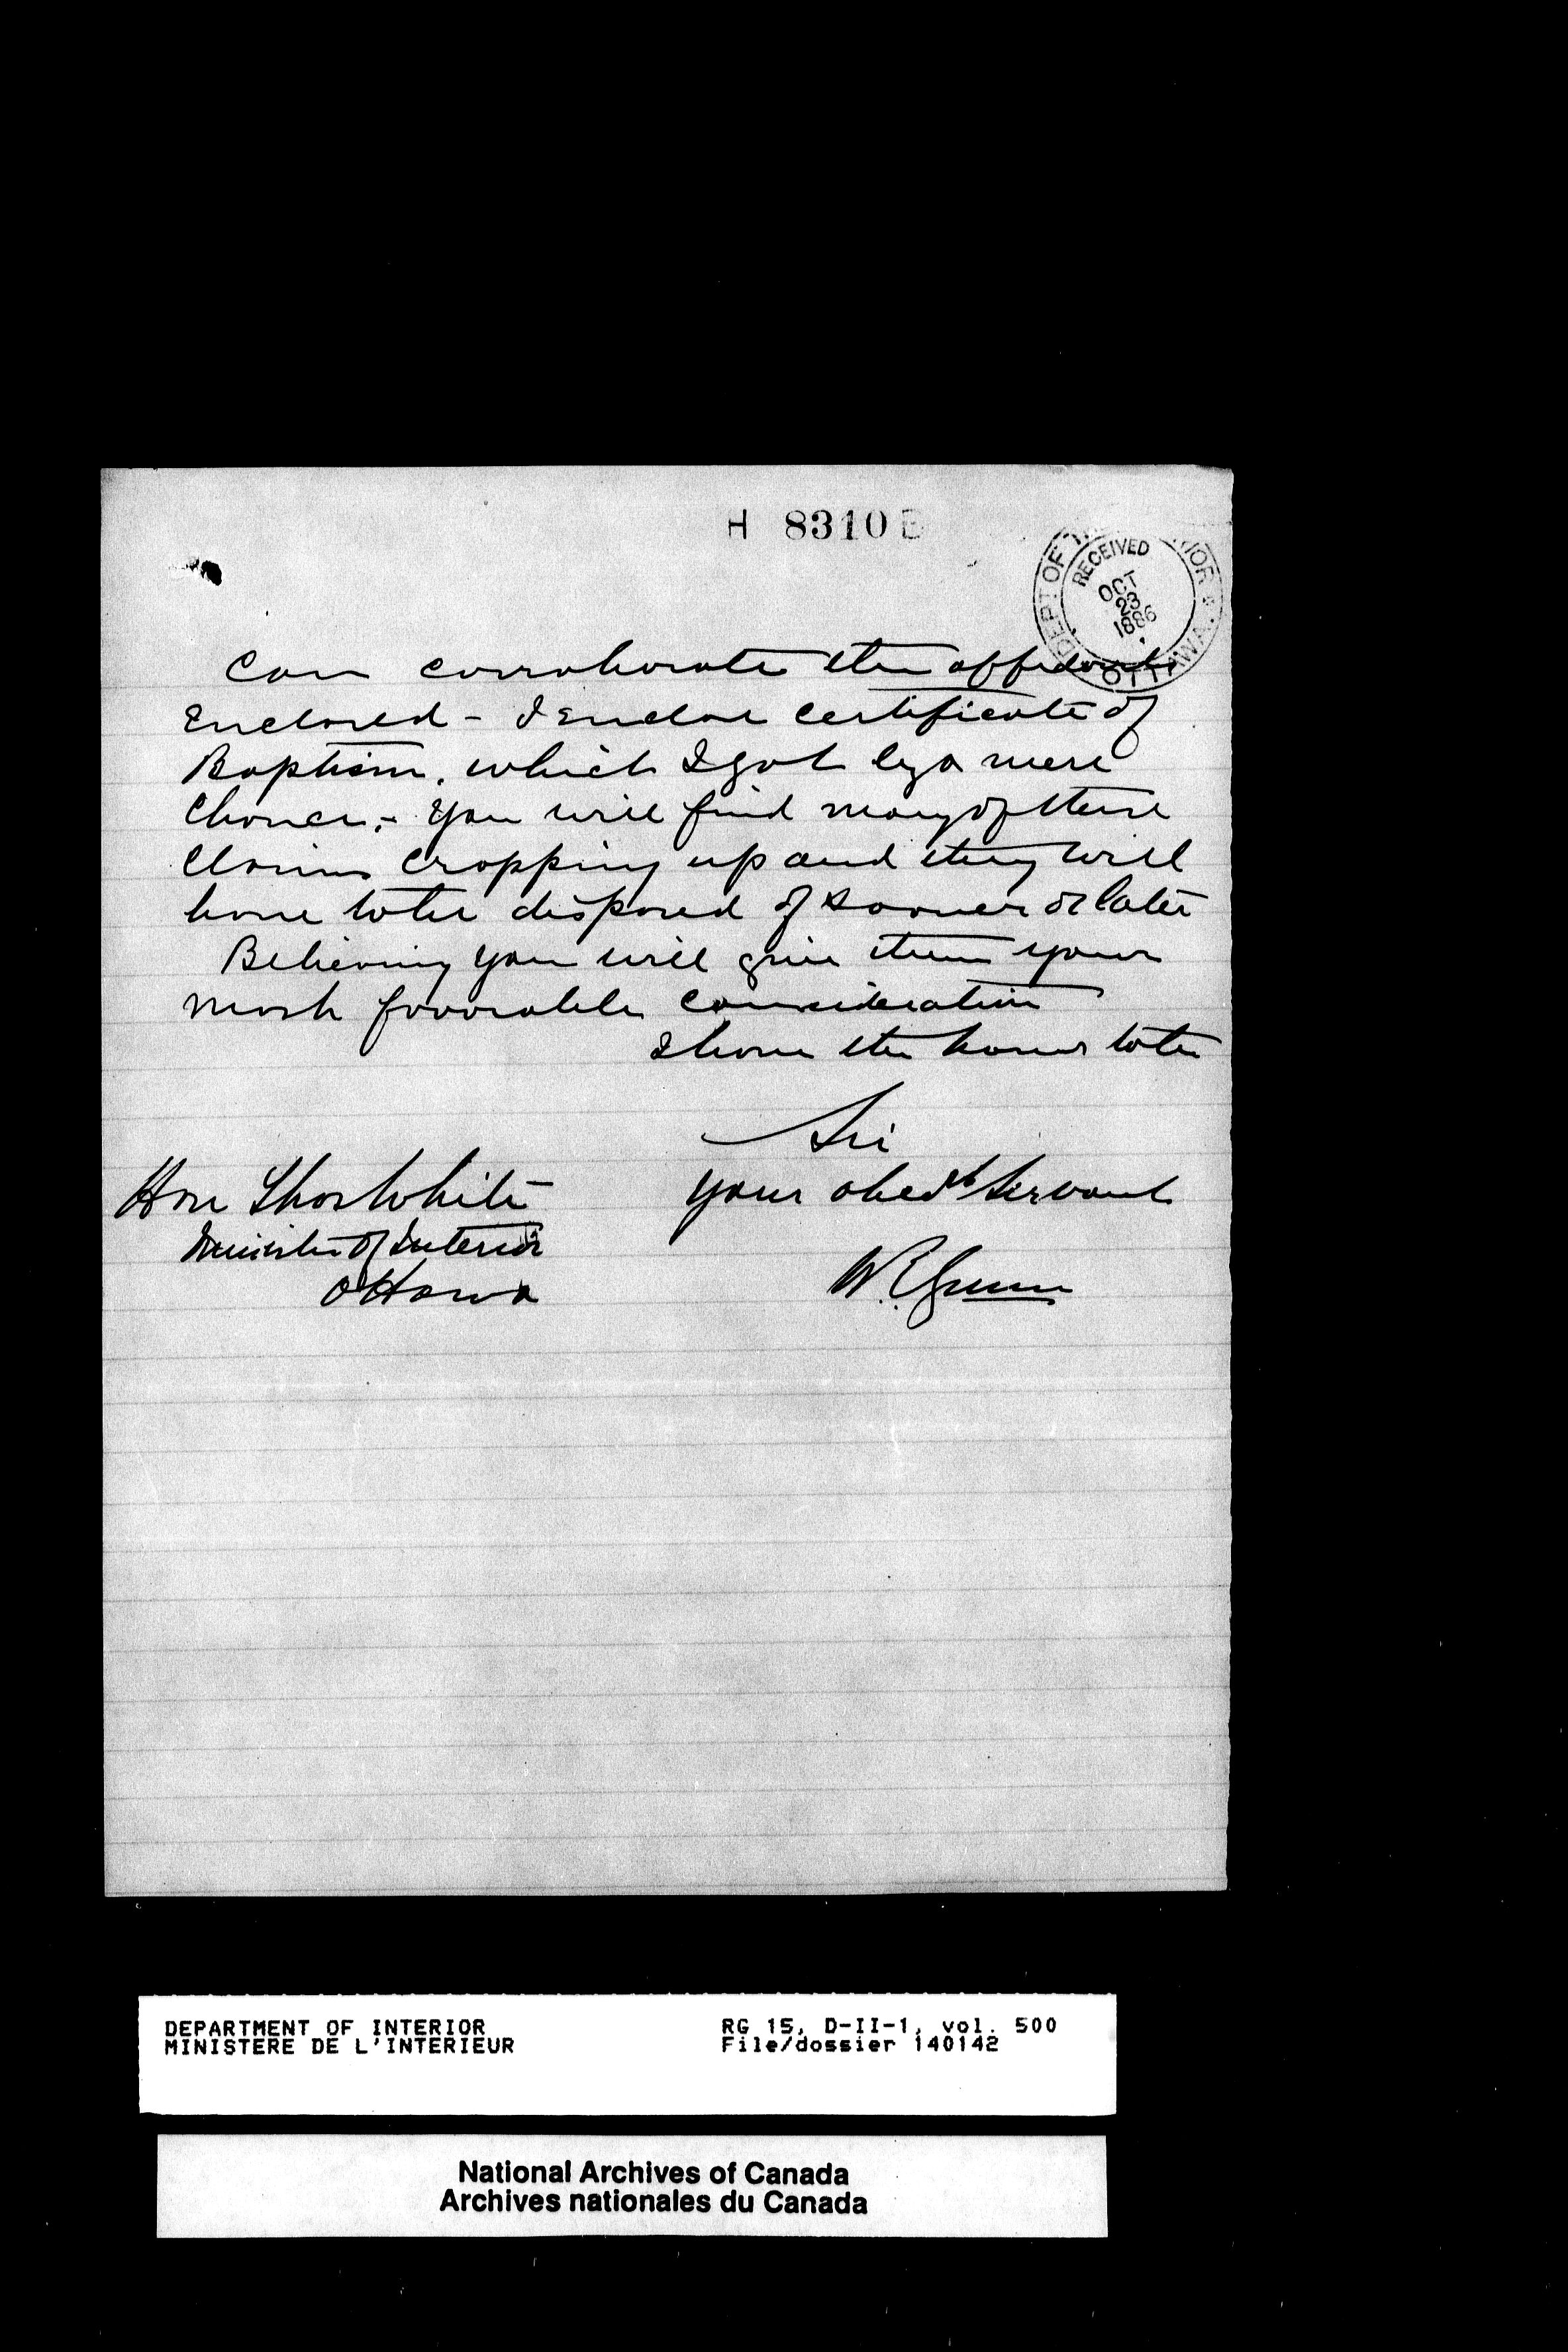 H 8310 B
DEPT OF THE INTERIOR
RECEIVED
OCT
23
1886
OTTAWA.
Can corroborate the affidavits
Enclosed - I Enclose Certificate of
Baptism, which I got by a mere
Chance,- You will find many of these
Claims Cropping up and they will
have to be disposed of sooner or later
Believing you will give them your
most favorable Consideration
I have the honor to be
Sir
Your obedt Servant
Hon Thos White
Minister of Interior
Ottawa
DEPARTMENT OF INTERIOR
MINISTERE DE L'INTERIEUR
RG 15, D-II-1, vol. 500
File/dossier 140142
National Archives of Canada
Archives nationales du Canada